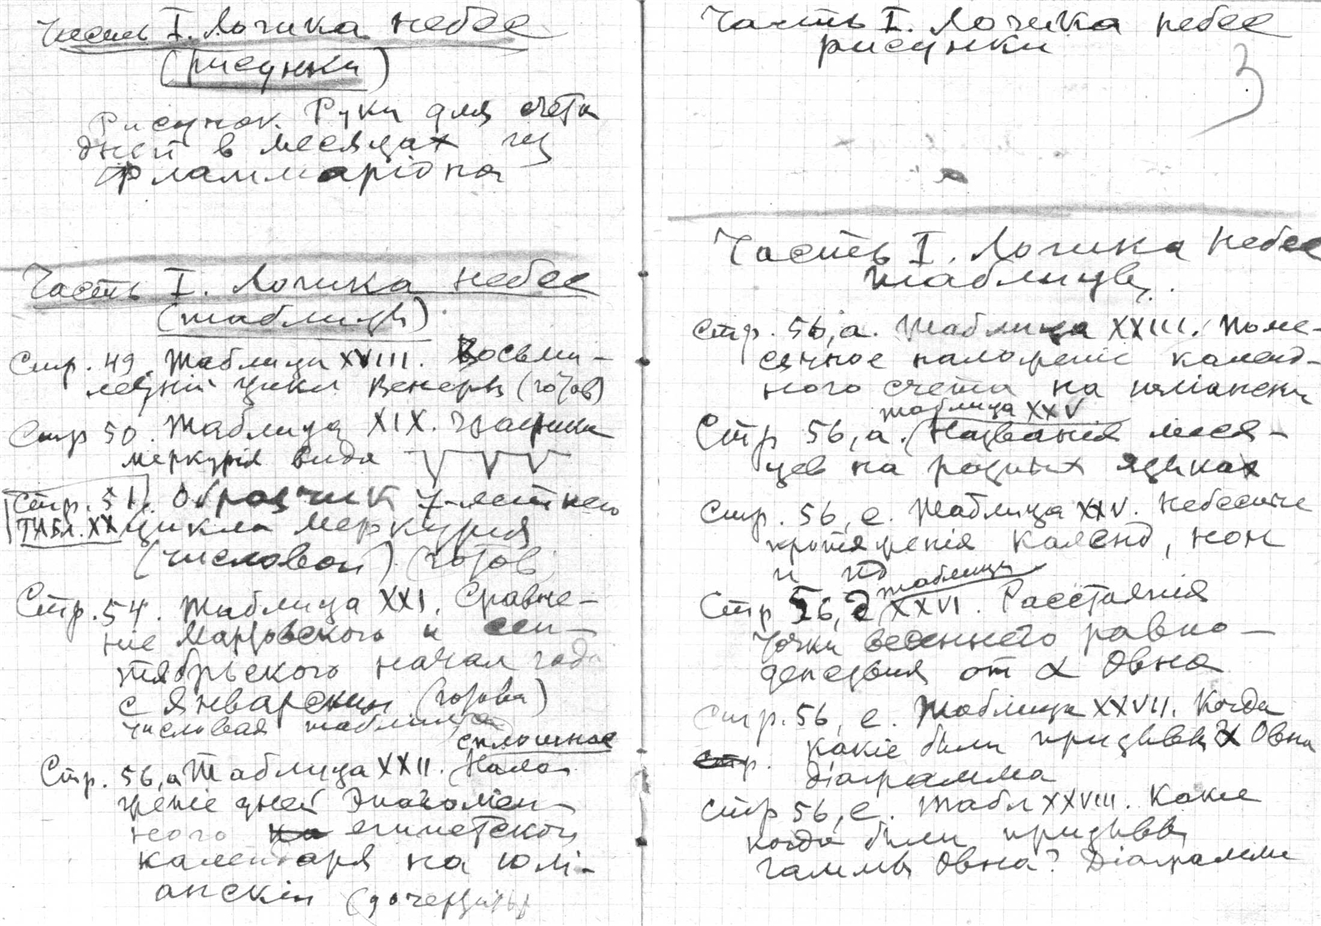 Часть I. Логика небес
(рисунки)
Рисунок. Руки для счета
дней в месяцах из
Фламмаріона
Часть I. Логика небес
(таблицы).
Стр. 49. Таблица XVIII. Восьми-
летній цикл Венеры (готов)
Стр 50. Таблица XIX.
меркурія вида
Стр. 51. Образчик 7-летнего
ТАБЛ. XX цикла меркурія
(числовой) (готов)
Стр. 54. Таблица XXI. Сравне-
ніе Мартовского и сен-
тябрьского начал года
с Январским (готова)
числовая таблица
сплошное
Стр. 56,а Таблица XXII. Нало-
женіе дней
ного египетского
календаря на юлі-
анскій (дочертить)
Часть I. Логика небес
рисунки
3
Часть I. Логика небес
таблицы.
Стр. 56,а. Таблица XXIII. Поме-
сячное наложеніе календ-
ного счета на юліанскій
таблица XXV
Стр 56,а. Названія меся-
цев на разных языках
Стр. 56, е. Таблица XXV. Небесные
календ, нон
и ид
таблица
Стр 56, XXVI. Расстоянія
точки весеннего равно-
денствия от α Овна
Стр. 56, е. Таблица XXVII. Когда
какіе были призывы α Овна
Діаграмма
Стр 56, е. Табл XXVIII. Какие
когда были призывы
гаммы Овна? Діаграмма